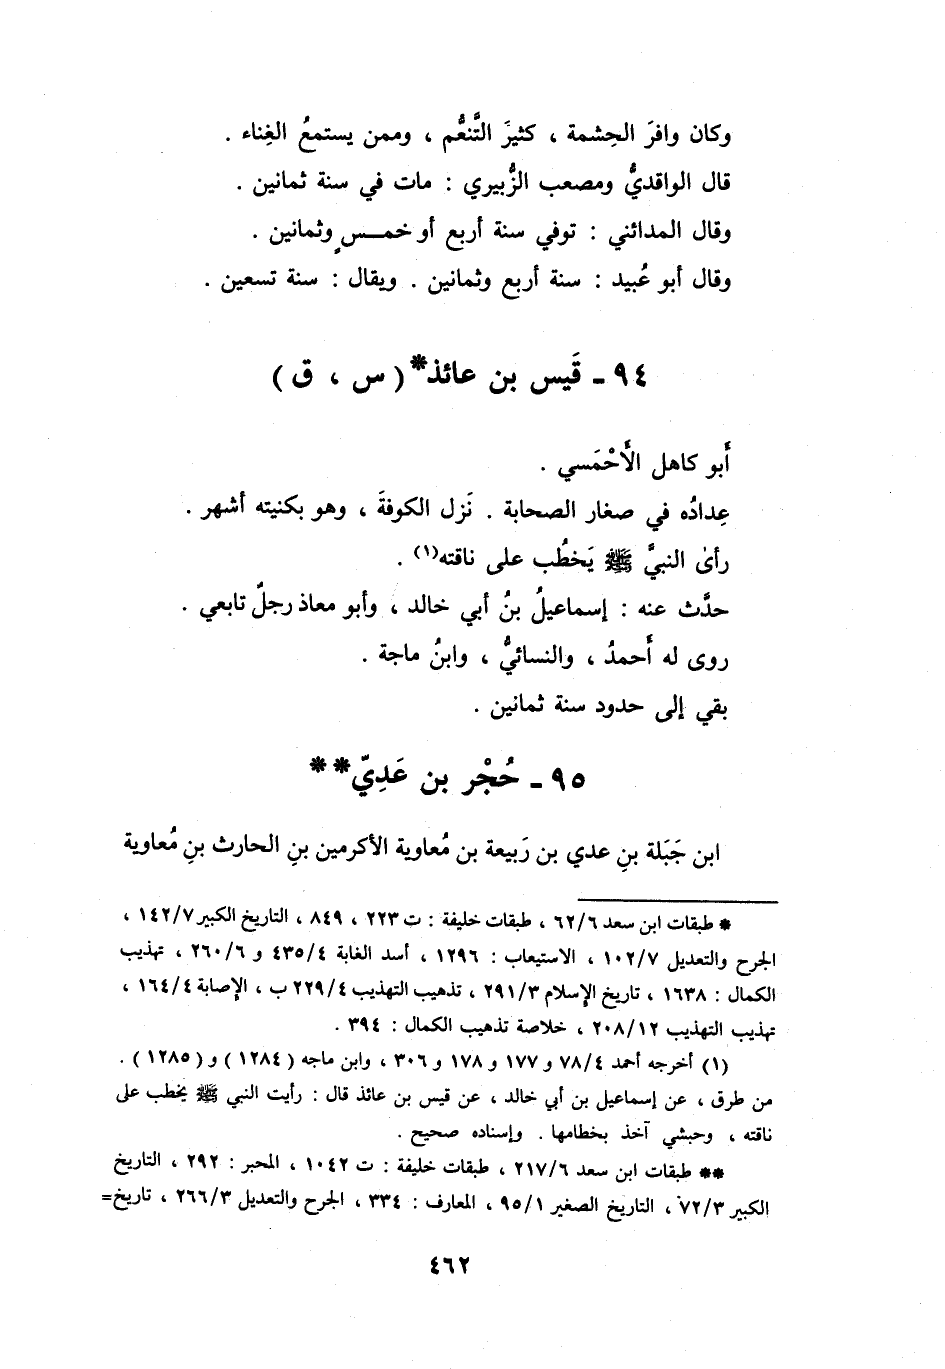 وكان وافرَ الحِشمة ، كثيرَ التَّنعُّم ، وممن يستمعُ الغِناء .
قال الواقديُّ ومصعب الزُّبيري : مات في سنة ثمانين .
وقال المدائني : توفي سنة أربع أو خمــسٍ وثمانين .
وقال أبو عُبيد : سنة أربع وثمانين . ويقال : سنة تسعين .
٩٤ - قَيس بن عائذ* ( س ، ق )
أَبو كاهل الأَحْمَسي .
عِدادُه في صغار الصحابة . نَزل الكوفةَ ، وهو بكنيته أشهر .
رأىٰ النبيَّ ﷺ يَخطُب على ناقته(١) .
حدَّث عنه : إسماعيلُ بنُ أبي خالد ، وأبو معاذ رجلٌ تابعي .
روى له أَحمدُ ، والنسائيُّ ، وابنُ ماجة .
بقي إلى حدود سنة ثمانين .
٩٥ - حُجْر بن عَدِيّ**
ابن جَبَلة بنِ عدي بن رَبيعة بن مُعاوية الأكرمين بنِ الحارث بنِ مُعاوية
* طبقات ابن سعد ٦٢/٦ ، طبقات خليفة : ت ٢٢٣ ، ٨٤٩ ، التاريخ الكبير ١٤٢/٧ ،
الجرح والتعديل ١٠٢/٧ ، الاستيعاب : ١٢٩٦ ، أسد الغابة ٤٣٥/٤ و ٢٦٠/٦ ، تهذيب
الكمال : ١٦٣٨ ، تاريخ الإسلام ٢٩١/٣ ، تذهيب التهذيب ٢٢٩/٤ ب ، الإصابة ١٦٤/٤ ،
تهذيب التهذيب ٢٠٨/١٢ ، خلاصة تذهيب الكمال : ٣٩٤ .
(١) أخرجه أحمد ٧٨/٤ و ١٧٧ و ١٧٨ و ٣٠٦ ، وابن ماجه ( ١٢٨٤ ) و ( ١٢٨٥ ) .
من طرق ، عن إسماعيل بن أبي خالد ، عن قيس بن عائذ قال : رأيت النبي ﷺ يخطب على
ناقته ، وحبشي آخذ بخطامها . وإسناده صحيح .
** طبقات ابن سعد ٢١٧/٦ ، طبقات خليفة : ت ١٠٤٢ ، المحبر : ٢٩٢ ، التاريخ
الكبير ٧٢/٣ ، التاريخ الصغير ٩٥/١ ، المعارف : ٣٣٤ ، الجرح والتعديل ٢٦٦/٣ ، تاريخ=
٤٦٢